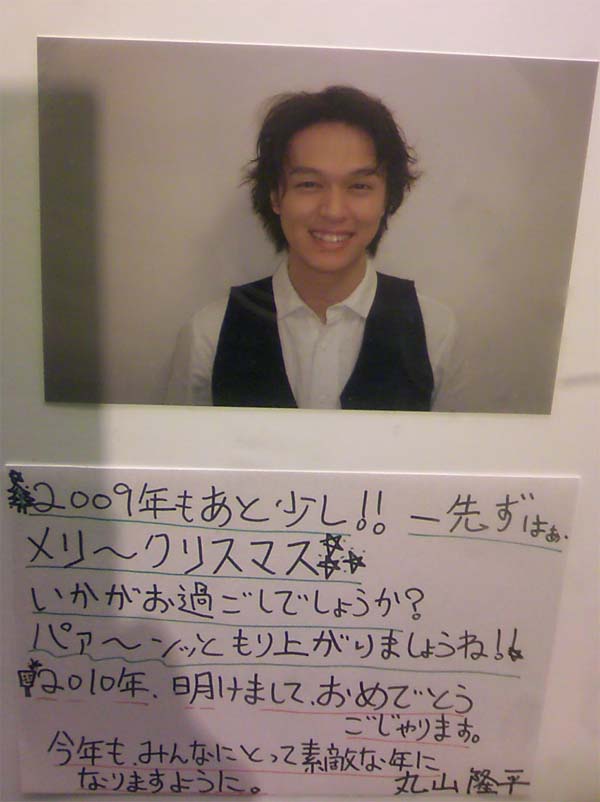 2009年もあと少し!! 一先ずはぁ、
メリ〜クリスマス☆☆☆
いかがお過ごしでしょうか?
パァ〜ンッともり上がりましょうね!!
2010年、明けまして、おめでとう
ごじゃります。
今年も、みんなにとって素敵な年に
なりますように。 丸山隆平